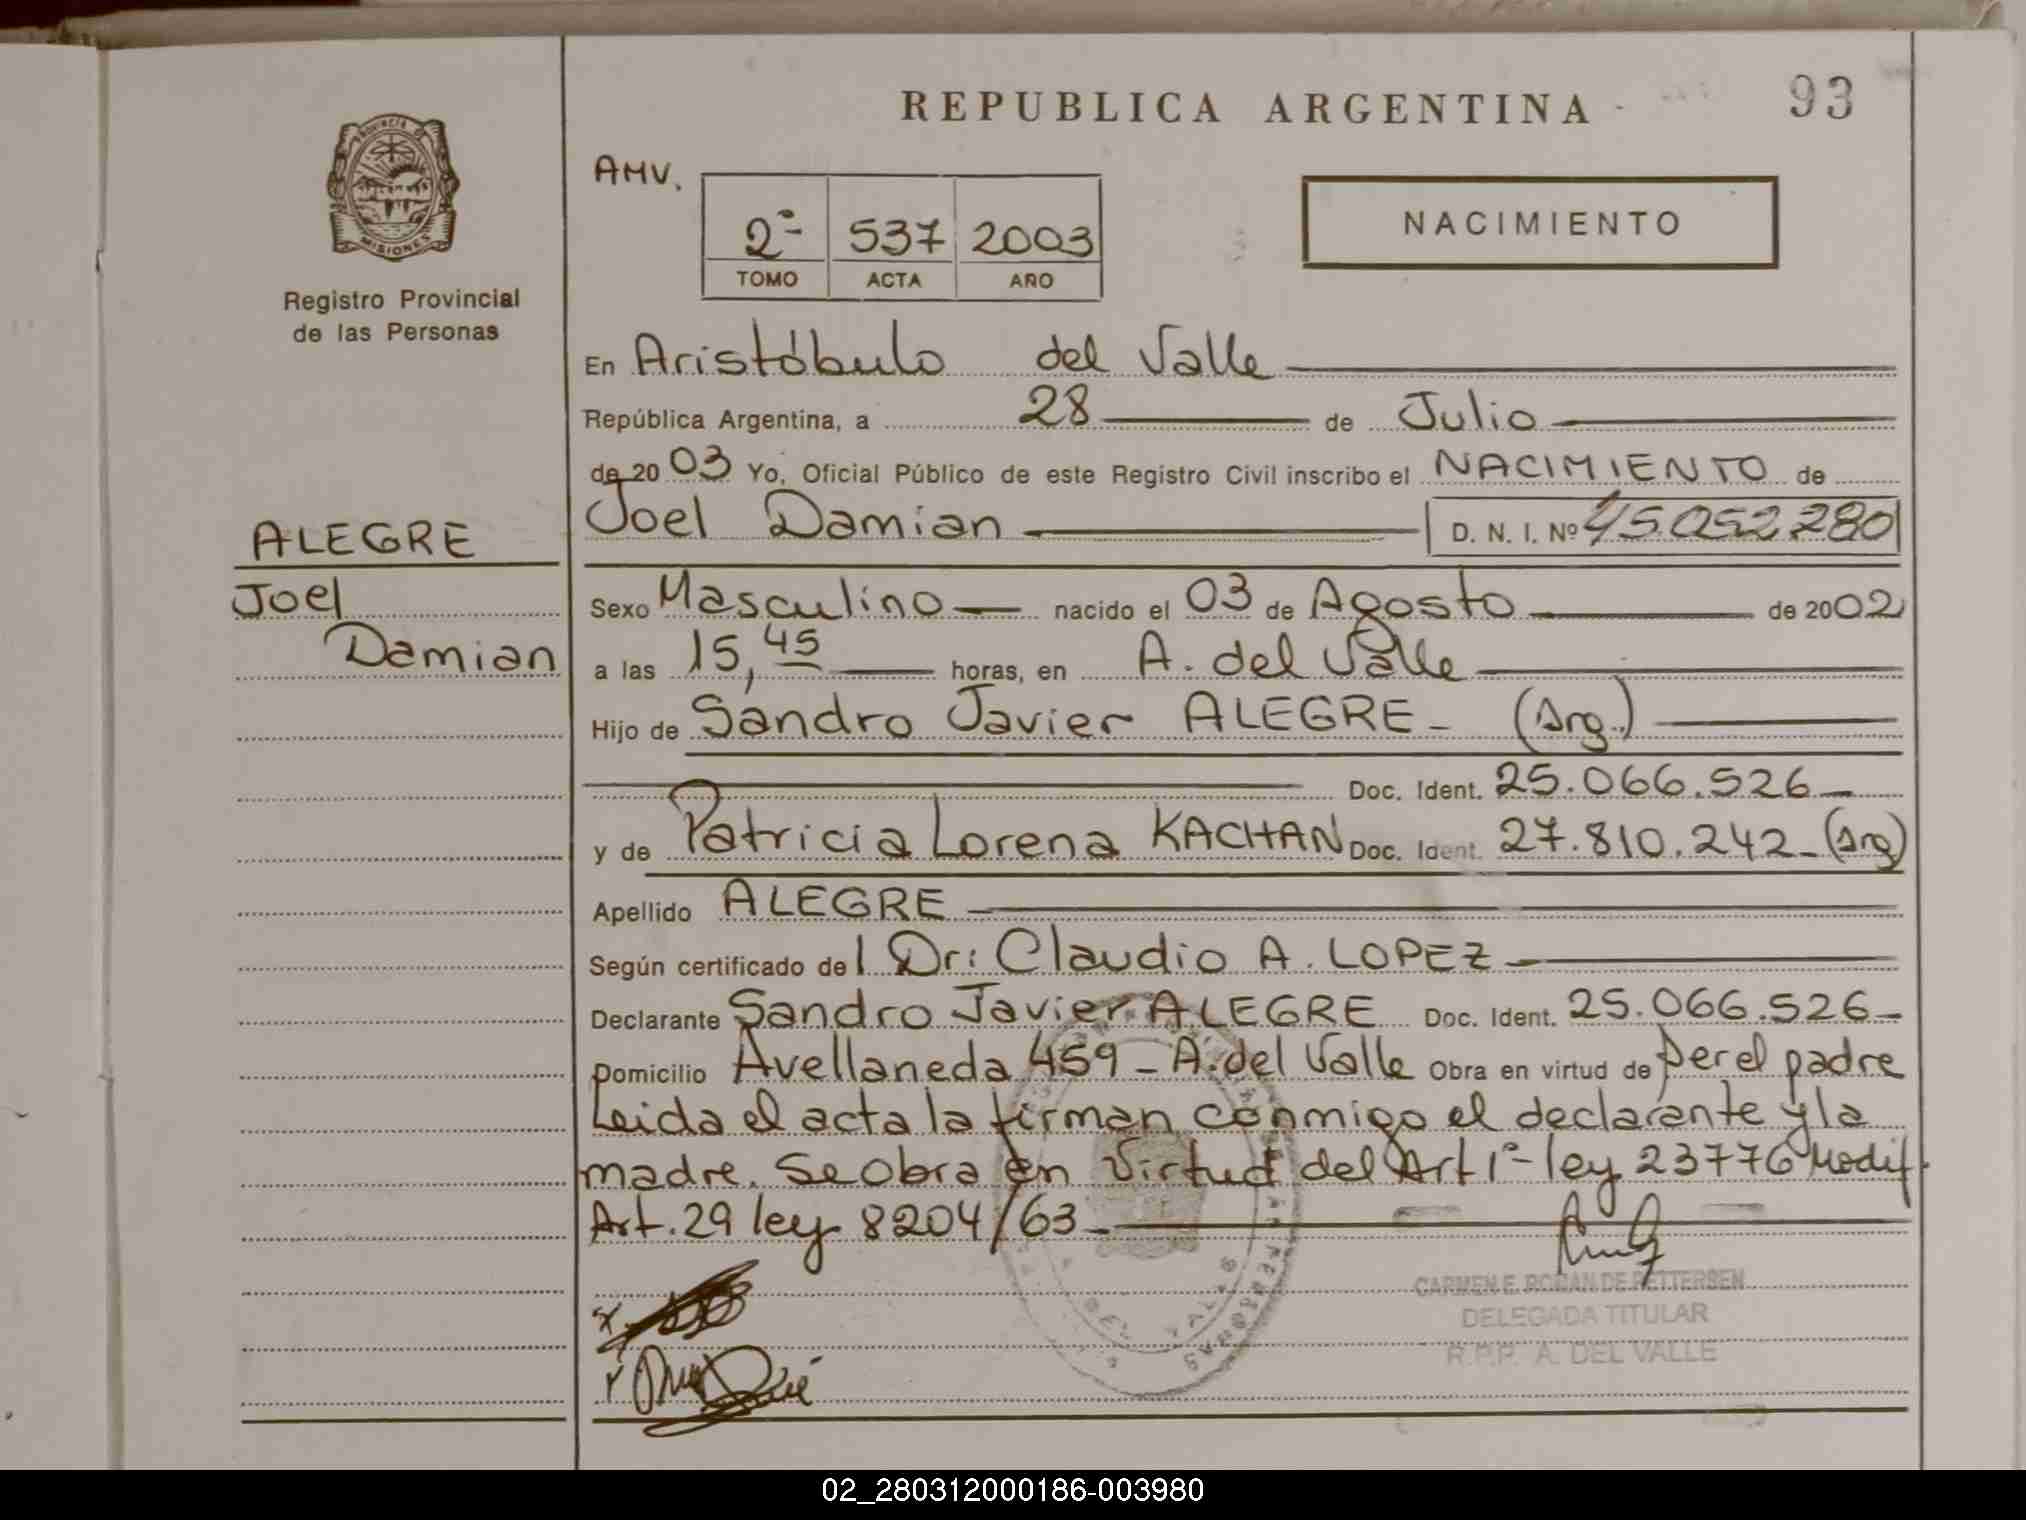 REPUBLICA ARGENTINA
93
PROVINCIA DE
MISIONES
Registro Provincial
de las Personas
AMV.
2ª 537 2003
TOMO ACTA AÑO
NACIMIENTO
En Aristóbulo del Valle
República Argentina, a 28 de Julio
de 2003 Yo, Oficial Público de este Registro Civil inscribo el NACIMIENTO de
Joel Damian D. N. I. Nº 45.052.280
ALEGRE
Joel
Damian
Sexo Masculino nacido el 03 de Agosto de 2002
a las 15,45 horas, en A. del Valle
Hijo de Sandro Javier ALEGRE - (Arg.)
Doc. Ident. 25.066.526
y de Patricia Lorena KACHAN Doc. Ident. 27.810.242 - (Arg)
Apellido ALEGRE
Según certificado del Dr: Claudio A. LOPEZ
Declarante Sandro Javier ALEGRE Doc. Ident. 25.066.526
Domicilio Avellaneda 459 - A. del Valle Obra en virtud de ser el padre
Leida el acta la firman conmigo el declarante y la
madre. Se obra en virtud del Art 1º ley 23776 Modif.
Art. 29 ley 8204/63
CARMEN E. RODAN DE PETTERSEN
DELEGADA TITULAR
R.P.P. A. DEL VALLE
02_280312000186-003980